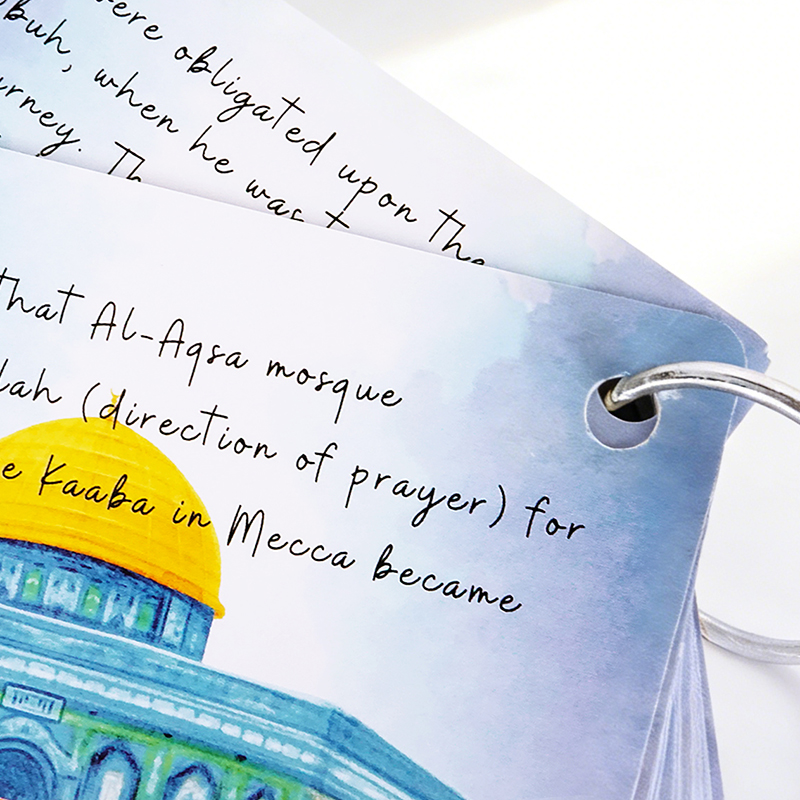 were obligated upon the
buh, when he was
rney.
that Al-Aqsa mosque
lah (direction of prayer) for
e Kaaba in Mecca became